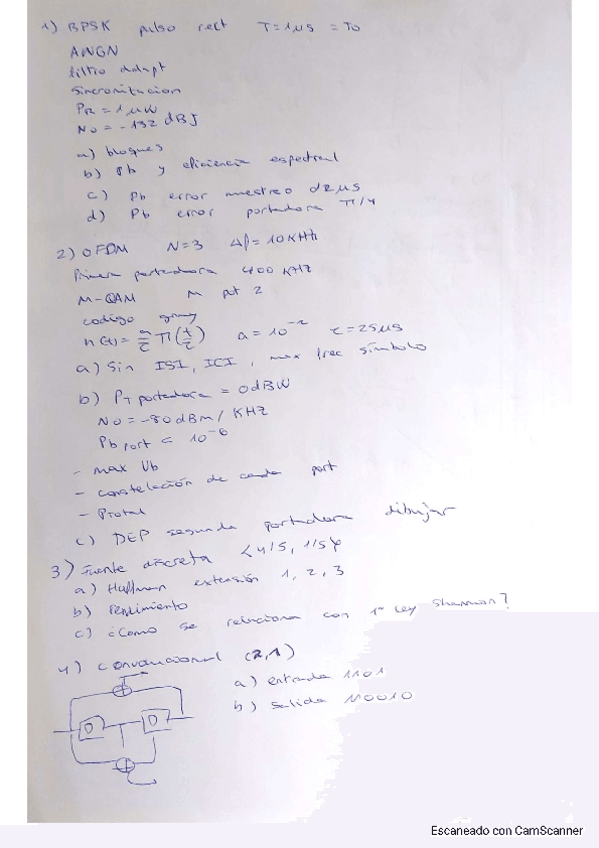 1) BPSK pulso rect T=1μs = To
AWGN
filtro adapt
sincronizacion
PR = 1 μW
No = -132 dBJ
a) bloques
b) Pb y eficiencia espectral
c) Pb error muestreo de 2μs
d) Pb error portadora π/4
2) OFDM N=3 Δf = 10KHz
Primera portadora 400 KHz
M-QAM M pot 2
codigo gray
h(t) = a/τ Π(t/τ) a = 10^-2 τ = 25μs
a) Sin ISI, ICI, max frec símbolo
b) PT portadora = 0dBW
No = -80 dBm/KHz
Pb port < 10^-6
- max Vb
- constelación de cada port
- Ptotal
c) DEP segunda portadora dibujar
3) Fuente discreta {4/5, 1/5}
a) Huffman extensión 1, 2, 3
b) rendimiento
c) ¿Como se relaciona con 1ª Ley Shannon?
4) convolucional (2,1)
a) entrada 1101
D D
b) salida 110010
Escaneado con CamScanner